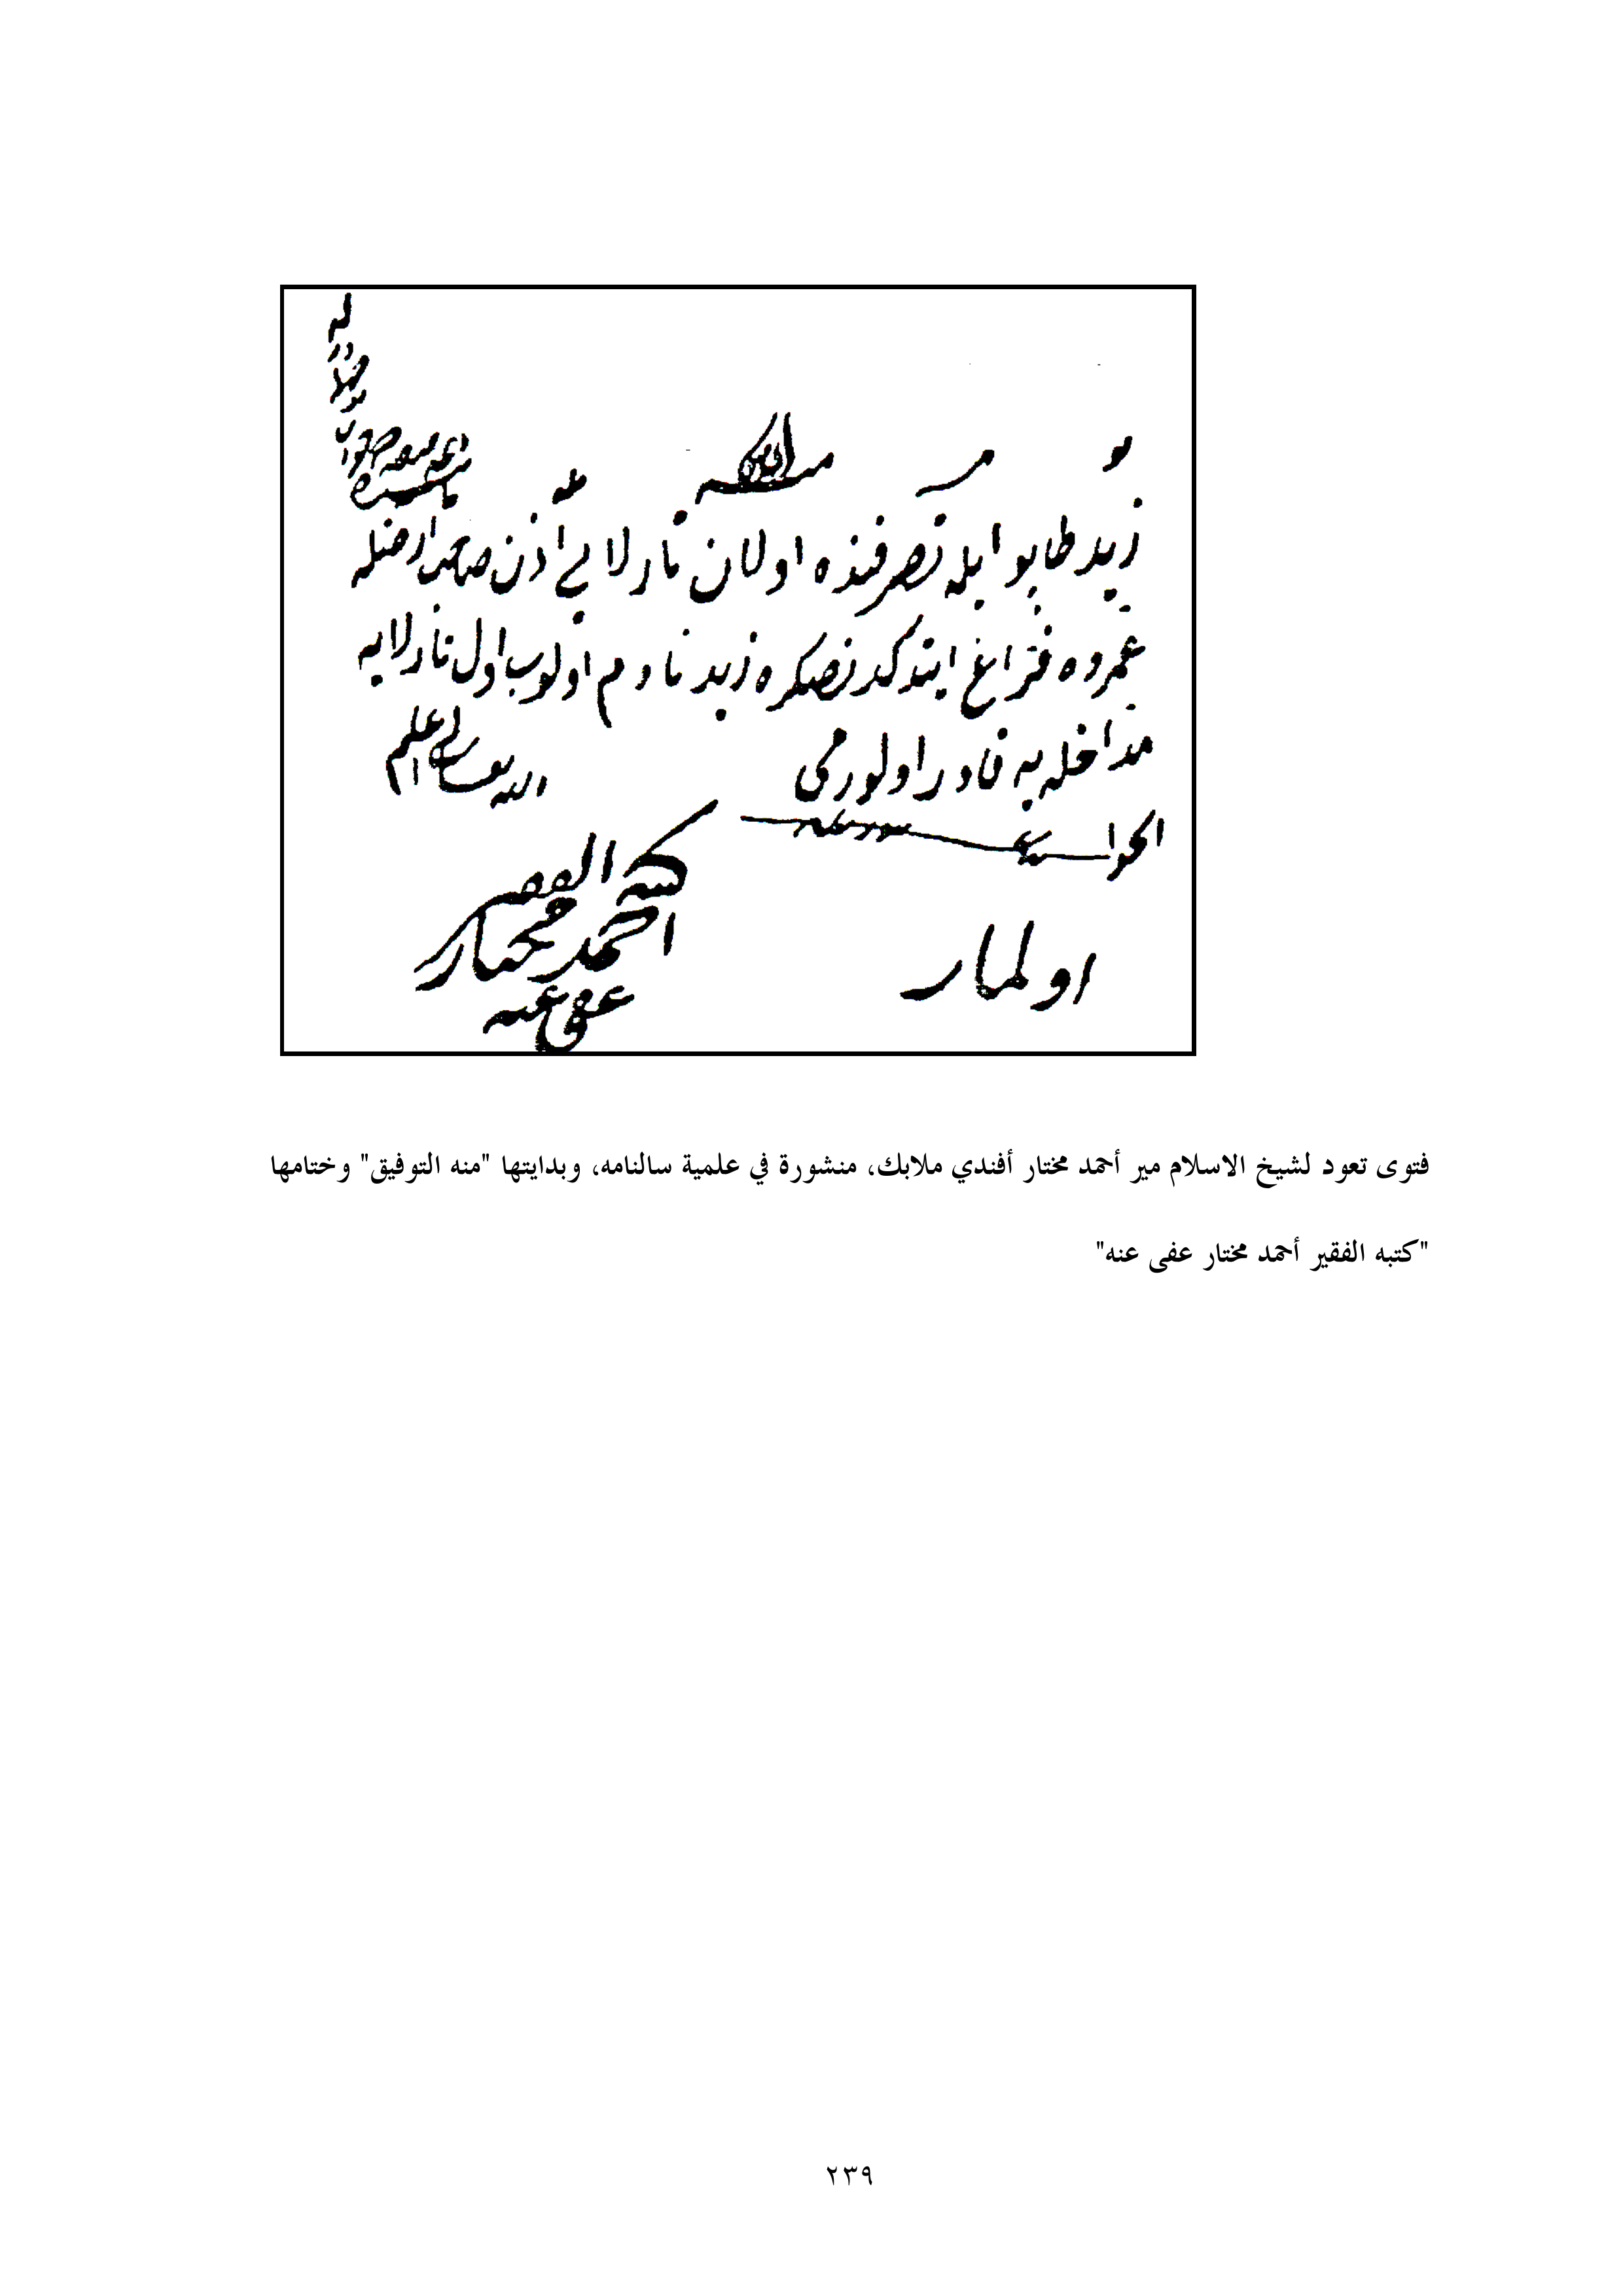 زيد طابو ايله تصرفنده اولان تارلاسنى اذن صاحب ارضله
عمروه فراغ ايتدكدنصكره زيد نادم اولوب اول تارلايه
مداخله يه قادر اولورمى
الله تعالى اعلم
الجواب
اولماز
كتبه الفقير
احمد مختار
عفى عنه
فتوى تعود لشيخ الاسلام مير أحمد مختار أفندي ملابك، منشورة في علمية سالنامه، وبدايتها "منه التوفيق" وختامها
"كتبه الفقير أحمد مختار عفى عنه"
٢٣٩